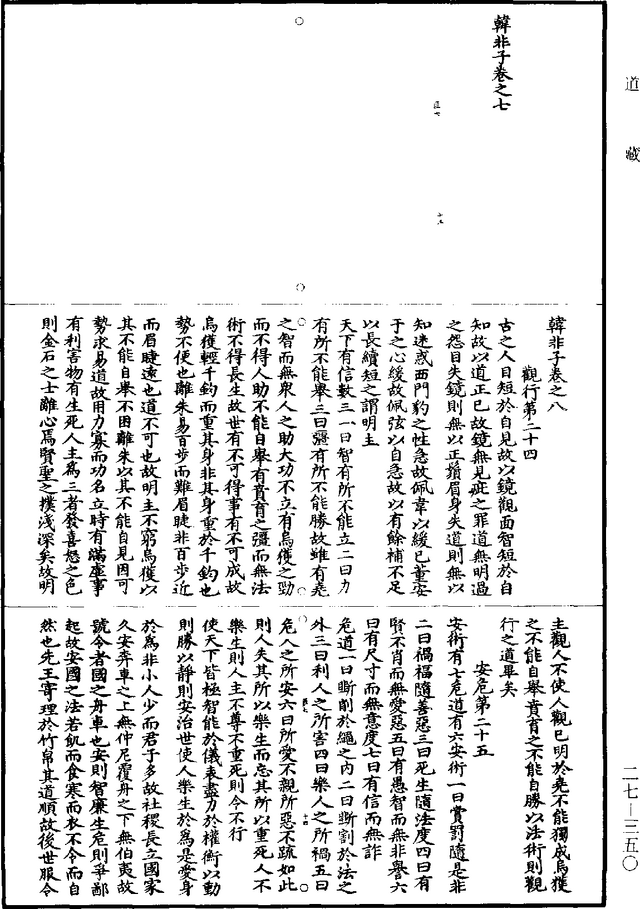 道藏
韓非子卷之七
韓非子卷之八
觀行第二十四
古之人目短於自見故以鏡觀面智短於自
知故以道正已故鏡無見疵之罪道無明過
之怨目失鏡則無以正鬚眉身失道則無以
知迷惑西門豹之性急故佩韋以緩已董安
于之心緩故佩弦以自急故以有餘補不足
以長續短之謂明主
天下有信數三一曰智有所不能立二曰力
有所不能舉三曰彊有所不能勝故雖有堯
之智而無衆人之助大功不立有烏獲之勁
而不得人助不能自舉有賁育之彊而無法
術不得長生故世有不可得事有不可成故
烏獲輕千鈞而重其身非其身重於千鈞也
勢不便也離朱易百步而難眉睫非百步近
而眉睫遠也道不可也故明主不窮烏獲以
其不能自舉不困離朱以其不能自見因可
勢求易道故用力寡而功名立時有滿虛事
有利害物有生死人主為三者發喜怒之色
則金石之士離心焉賢聖之撲淺深矣故明
主觀人不使人觀已明於堯不能獨成烏獲
之不能自舉賁育之不能自勝以法術則觀
行之道畢矣
安危第二十五
安術有七危道有六安術一曰賞罰隨是非
二曰禍福隨善惡三曰死生隨法度四曰有
賢不肖而無愛惡五曰有愚智而無非譽六
曰有尺寸而無意度七曰有信而無詐
危道一曰斷削於繩之内二曰斷割於法之
外三曰利人之所害四曰樂人之所禍五曰
危人之所安六曰所愛不親所惡不疏如此
則人失其所以樂生而忘其所以重死人不
樂生則人主不尊不重死則令不行
使天下皆極智能於儀表盡力於權衡以動
則勝以靜則安治世使人樂生於為是愛身
於為非小人少而君子多故社稷長立國家
久安奔車之上無仲尼覆舟之下無伯夷故
號令者國之舟車也安則智廉生危則爭鄙
起故安國之法若飢而食寒而衣不令而自
然也先王寄理於竹帛其道順故後世服令
二七—三五〇